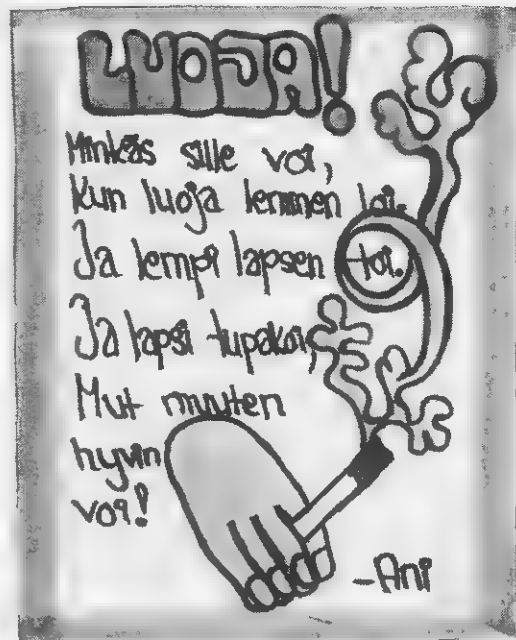 LUOJA!
Minkäs sille voi,
Kun luoja lemmen toi.
Ja lempi lapsen toi.
Ja lapsi tupakoi,
Mut muuten
hyvin
voi!
-Ani